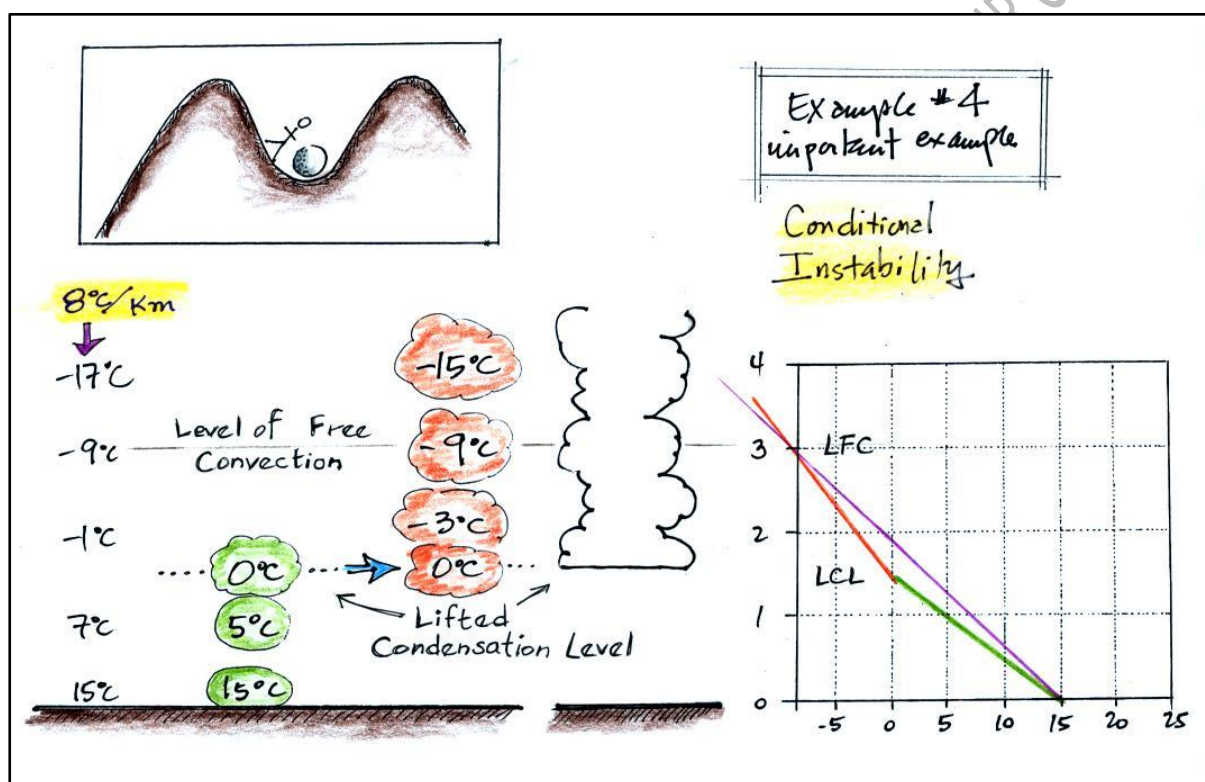 Example #4
important example
Conditional
Instability
8°C/Km
-17°C
-9°C
-1°C
7°C
15°C
Level of Free
Convection
0°C
5°C
15°C
-15°C
-9°C
-3°C
0°C
Lifted
Condensation Level
4
3
2
1
0
LFC
LCL
-5 0 5 10 15 20 25